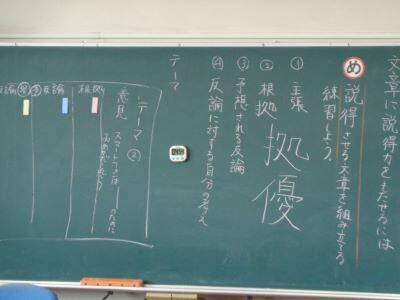 文章に説得力をもたせるには
め
説得させる文章を組み立てる
練習しよう。
① 主張
② 根拠
拠 優
③ 予想される反論
④ 反論に対する自分の考え
テーマ
テーマ②
意見
スマートフォンは
根拠
反論